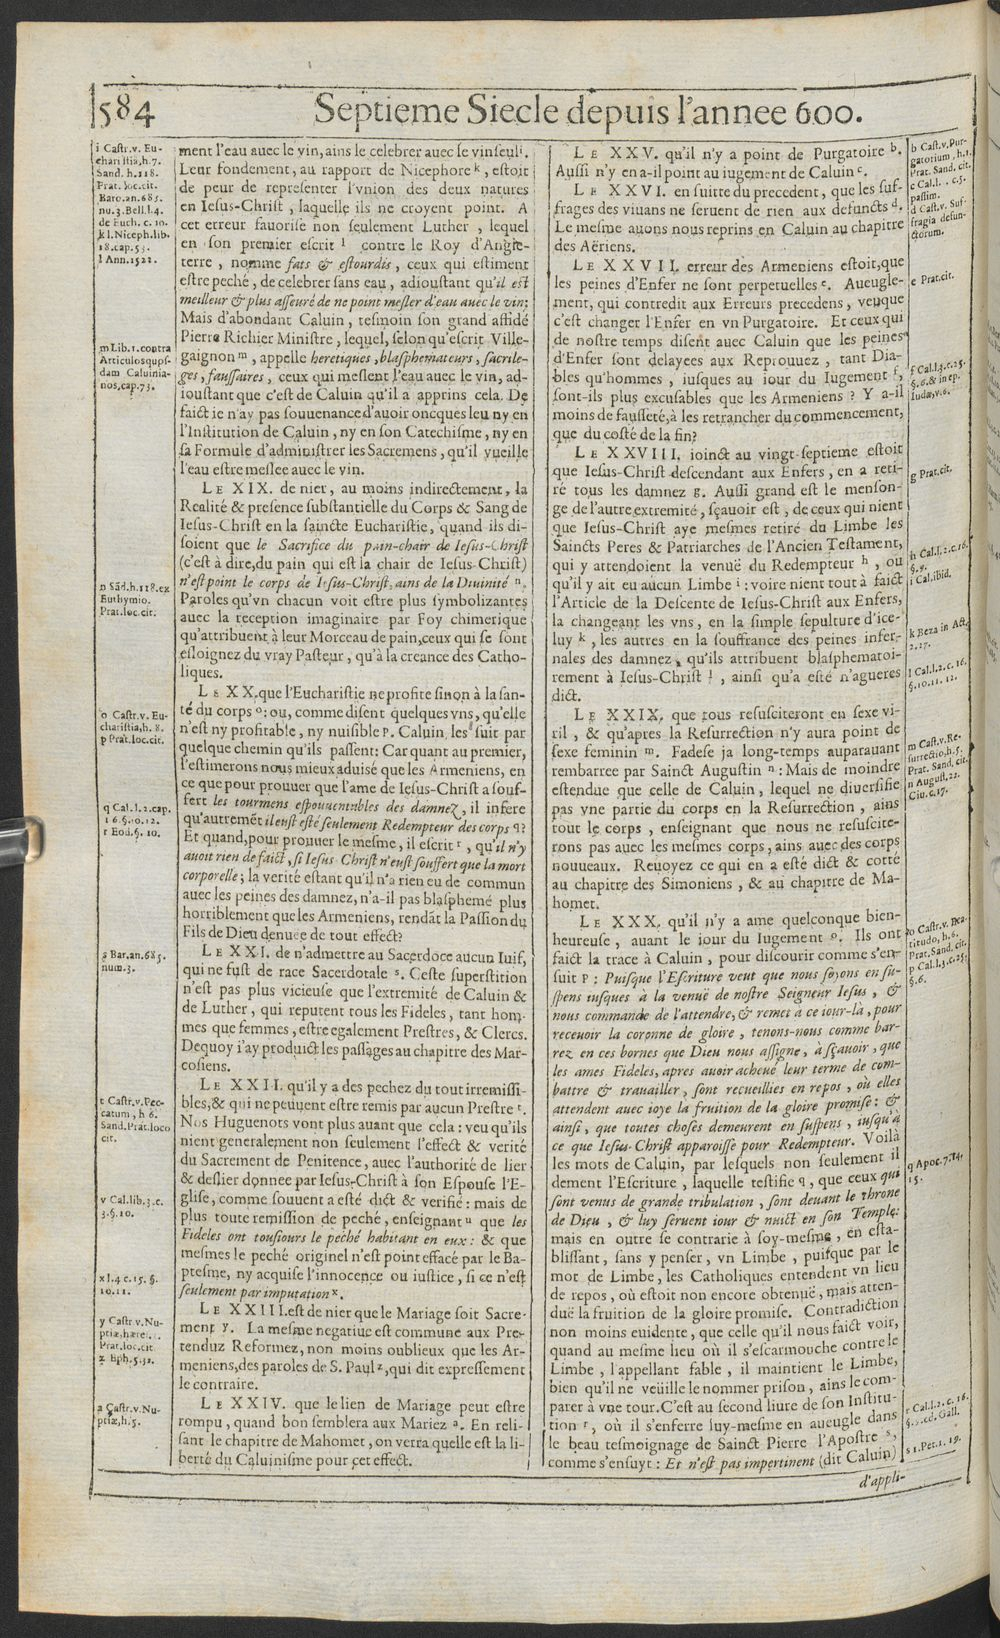 584
Septieme Siecle depuis l'annee 600.
i Castr. v. Eu-
charistia, h. 7.
Sand. h. 118.
Prat. loc. cit.
Baro. an. 685.
nu. 3. Bell. l. 4.
de Euch. c. 10.
k l. Niceph. lib.
18. cap. 53.
l Ann. 1522.
m Lib. 1. contra
Articulos quos-
dam Caluinia-
nos, cap. 73.
n Sãd. h. 118. ex
Euthymio.
Prat. loc. cit.
o Castr. v. Eu-
charistia, h. 8.
p Prat. loc. cit.
q Cal. l. 2. cap.
16. §. 10. 12.
r Eod. §. 10.
s Bar. an. 685.
num. 3.
t Castr. v. Pec-
catum, h 6.
Sand. Prat. loco
cit.
v Cal. lib. 3. c.
3. §. 10.
x l. 4. c. 15. §.
10. 11.
y Castr v. Nu-
ptiæ, hære.
Prat. loc. cit
z Eph. 5. 32.
a Castr. v. Nu-
ptiæ, h. 5.
ment l'eau auec le vin, ains le celebrer auec le vin seul i.
Leur fondement, au rapport de Nicephore k, estoit
de peur de representer l'vnion des deux natures
en Iesus-Christ, laquelle ils ne croyent point. A
cet erreur fauorise non seulement Luther, lequel
en son premier escrit l contre le Roy d'Angle-
terre, nomme fats & estourdis, ceux qui estiment
estre peché, de celebrer sans eau, adioustant qu'il est
meilleur & plus asseuré de ne point mesler d'eau auec le vin:
Mais d'abondant Caluin, tesmoin son grand affidé
Pierre Richier Ministre, lequel, selon qu'escrit Ville-
gaignon m, appelle heretiques, blasphemateurs, sacrile-
ges, faussaires, ceux qui meslent l'eau auec le vin, ad-
ioustant que c'est de Caluin qu'il a apprins cela. De
faict ie n'ay pas souuenance d'auoir oncques leu ny en
l'Institution de Caluin, ny en son Catechisme, ny en
sa Formule d'administrer les Sacremens, qu'il vueille
l'eau estre meslee auec le vin.
LE XIX. de nier, au moins indirectement, la
Realité & presence substantielle du Corps & Sang de
Iesus-Christ en la saincte Eucharistie, quand ils di-
soient que le Sacrifice du pain-chair de Iesus-Christ
(c'est à dire, du pain qui est la chair de Iesus-Christ)
n'est point le corps de Iesus-Christ, ains de la Diuinité n.
Paroles qu'vn chacun voit estre plus symbolizantes
auec la reception imaginaire par Foy chimerique
qu'attribuent à leur Morceau de pain, ceux qui se sont
esloignez du vray Pasteur, qu'à la creance des Catho-
liques.
LE XX. que l'Eucharistie ne profite sinon à la san-
té du corps o: ou, comme disent quelques vns, qu'elle
n'est ny profitable, ny nuisible p. Caluin les suit par
quelque chemin qu'ils passent: Car quant au premier,
l'estimerons nous mieux aduisé que les Armeniens, en
ce que pour prouuer que l'ame de Iesus-Christ a souf-
fert les tourmens espouuentables des damnez, il infere
qu'autremẽt il eust esté seulement Redempteur des corps q?
Et quand, pour prouuer le mesme, il escrit r, qu'il n'y
auoit rien de faict, si Iesus Christ n'eust souffert que la mort
corporelle; la verité estant qu'il n'a rien eu de commun
auec les peines des damnez, n'a-il pas blasphemé plus
horriblement que les Armeniens, rendãt la Passion du
Fils de Dieu denuee de tout effect?
LE XXI. de n'admettre au Sacerdoce aucun Iuif,
qui ne fust de race Sacerdotale s. Ceste superstition
n'est pas plus vicieuse que l'extremité de Caluin &
de Luther, qui reputent tous les Fideles, tant hom-
mes que femmes, estre egalement Prestres, & Clercs.
Dequoy i'ay produict les passages au chapitre des Mar-
cosiens.
LE XXII. qu'il y a des pechez du tout irremissi-
bles, & qui ne peuuent estre remis par aucun Prestre t.
Nos Huguenots vont plus auant que cela: veu qu'ils
nient generalement non seulement l'effect & verité
du Sacrement de Penitence, auec l'authorité de lier
& deslier donnee par Iesus-Christ à son Espouse l'E-
glise, comme souuent a esté dict & verifié: mais de
plus toute remission de peché, enseignant u que les
Fideles ont tousiours le peché habitant en eux: & que
mesmes le peché originel n'est point effacé par le Ba-
ptesme, ny acquise l'innocence ou iustice, si ce n'est
seulement par imputation x.
LE XXIII. est de nier que le Mariage soit Sacre-
ment y. La mesme negatiue est commune aux Pre-
tenduz Reformez, non moins oublieux que les Ar-
meniens, des paroles de S. Paul z, qui dit expressement
le contraire.
LE XXIV. que le lien de Mariage peut estre
rompu, quand bon semblera aux Mariez a. En reli-
sant le chapitre de Mahomet, on verra quelle est la li-
berté du Caluinisme pour cet effect.
LE XXV. qu'il n'y a point de Purgatoire b.
Aussi n'y en a-il point au iugement de Caluin c.
LE XXVI. en suitte du precedent, que les suf-
frages des viuans ne seruent de rien aux defuncts d.
Le mesme auons nous reprins en Caluin au chapitre
des Aëriens.
LE XXVII. erreur des Armeniens estoit, que
les peines d'Enfer ne sont perpetuelles e. Aueugle-
ment, qui contredit aux Erreurs precedens, veu que
c'est changer l'Enfer en vn Purgatoire. Et ceux qui
de nostre temps disent auec Caluin que les peines
d'Enfer sont delayees aux Reprouuez, tant Dia-
bles qu'hommes, iusques au iour du Iugement f,
sont-ils plus excusables que les Armeniens? Y a-il
moins de fausseté, à les retrancher du commencement,
que du costé de la fin?
LE XXVIII. ioinct au vingt-septieme estoit
que Iesus-Christ descendant aux Enfers, en a reti-
ré tous les damnez g. Aussi grand est le menson-
ge de l'autre extremité, sçauoir est, de ceux qui nient
que Iesus-Christ aye mesmes retiré du Limbe les
Saincts Peres & Patriarches de l'Ancien Testament,
qui y attendoient la venuë du Redempteur h, ou
qu'il y ait eu aucun Limbe i: voire nient tout à faict
l'Article de la Descente de Iesus-Christ aux Enfers,
la changeant les vns, en la simple sepulture d'ice-
luy k, les autres en la souffrance des peines infer-
nales des damnez, qu'ils attribuent blasphematoi-
rement à Iesus-Christ l, ainsi qu'a esté n'agueres
dict.
LE XXIX. que tous resusciteront en sexe vi-
ril, & qu'apres la Resurrection n'y aura point de
sexe feminin m. Fadese ja long-temps auparauant
rembarree par Sainct Augustin n: Mais de moindre
estendue que celle de Caluin, lequel ne diuersifie
pas vne partie du corps en la Resurrection, ains
tout le corps, enseignant que nous ne resuscite-
rons pas auec les mesmes corps, ains auec des corps
nouueaux. Reuoyez ce qui en a esté dict & cotté
au chapitre des Simoniens, & au chapitre de Ma-
homet.
LE XXX. qu'il n'y a ame quelconque bien-
heureuse, auant le iour du Iugement o. Ils ont
faict la trace à Caluin, pour discourir comme s'en-
suit p: Puisque l'Escriture veut que nous soyons en su-
spens iusques à la venuë de nostre Seigneur Iesus, &
nous commande de l'attendre, & remet à ce iour-là, pour
receuoir la coronne de gloire, tenons-nous comme bar-
rez en ces bornes que Dieu nous assigne, à sçauoir, que
les ames Fideles, apres auoir acheué leur terme de com-
battre & trauailler, sont recueillies en repos, où elles
attendent auec ioye la fruition de la gloire promise: &
ainsi, que toutes choses demeurent en suspens, iusqu'à
ce que Iesus-Christ apparoisse pour Redempteur. Voilà
les mots de Caluin, par lesquels non seulement il
dement l'Escriture, laquelle testifie q, que ceux qui
sont venus de grande tribulation, sont deuant le throne
de Dieu, & luy seruent iour & nuict en son Temple:
mais en outre se contrarie à soy-mesme, en esta-
blissant, sans y penser, vn Limbe, puisque par le
mot de Limbe, les Catholiques entendent vn lieu
de repos, où estoit non encore obtenuë, mais atten-
duë la fruition de la gloire promise. Contradiction
non moins euidente, que celle qu'il nous faict voir,
quand au mesme lieu où il s'escarmouche contre le
Limbe, l'appellant fable, il maintient le Limbe,
bien qu'il ne veüille le nommer prison, ains le com-
parer à vne tour. C'est au second liure de son Institu-
tion r, où il s'enferre luy-mesme en aueugle dans
le beau tesmoignage de Sainct Pierre l'Apostre s,
comme s'ensuyt: Et n'est pas impertinent (dit Caluin)
d'appli-
b Cast. v. Pur-
gatorium, h. 1.
Prat. Sand. cit.
c Cal. l. . c. 5.
passim.
d Cast. v. Suf-
fragia defun-
ctorum.
e Prat. cit.
f Cal. l. 3. c. 25.
§. 6. & in ep.
Iudæ, v. 6.
g Prat. cit.
h Cal. l. 2. c. 16.
§. 9.
i Cal. ibid.
k Beza in Act.
2. 27.
l Cal. l. 2. c. 16.
§. 10. 11. 12.
m Cast. v. Re-
surrectio, h. 5.
Prat. Sand. cit.
n August. 22.
Ciu. c. 17.
o Castr. v. Bea-
titudo, h. 6.
Prat. Sand. cit.
p Cal. l. 3. c. 25.
§. 6.
q Apoc. 7. 14.
15.
r Cal. l. 2. c. 16.
§. 9. ed. Gall.
s 1. Pet. 3. 19.